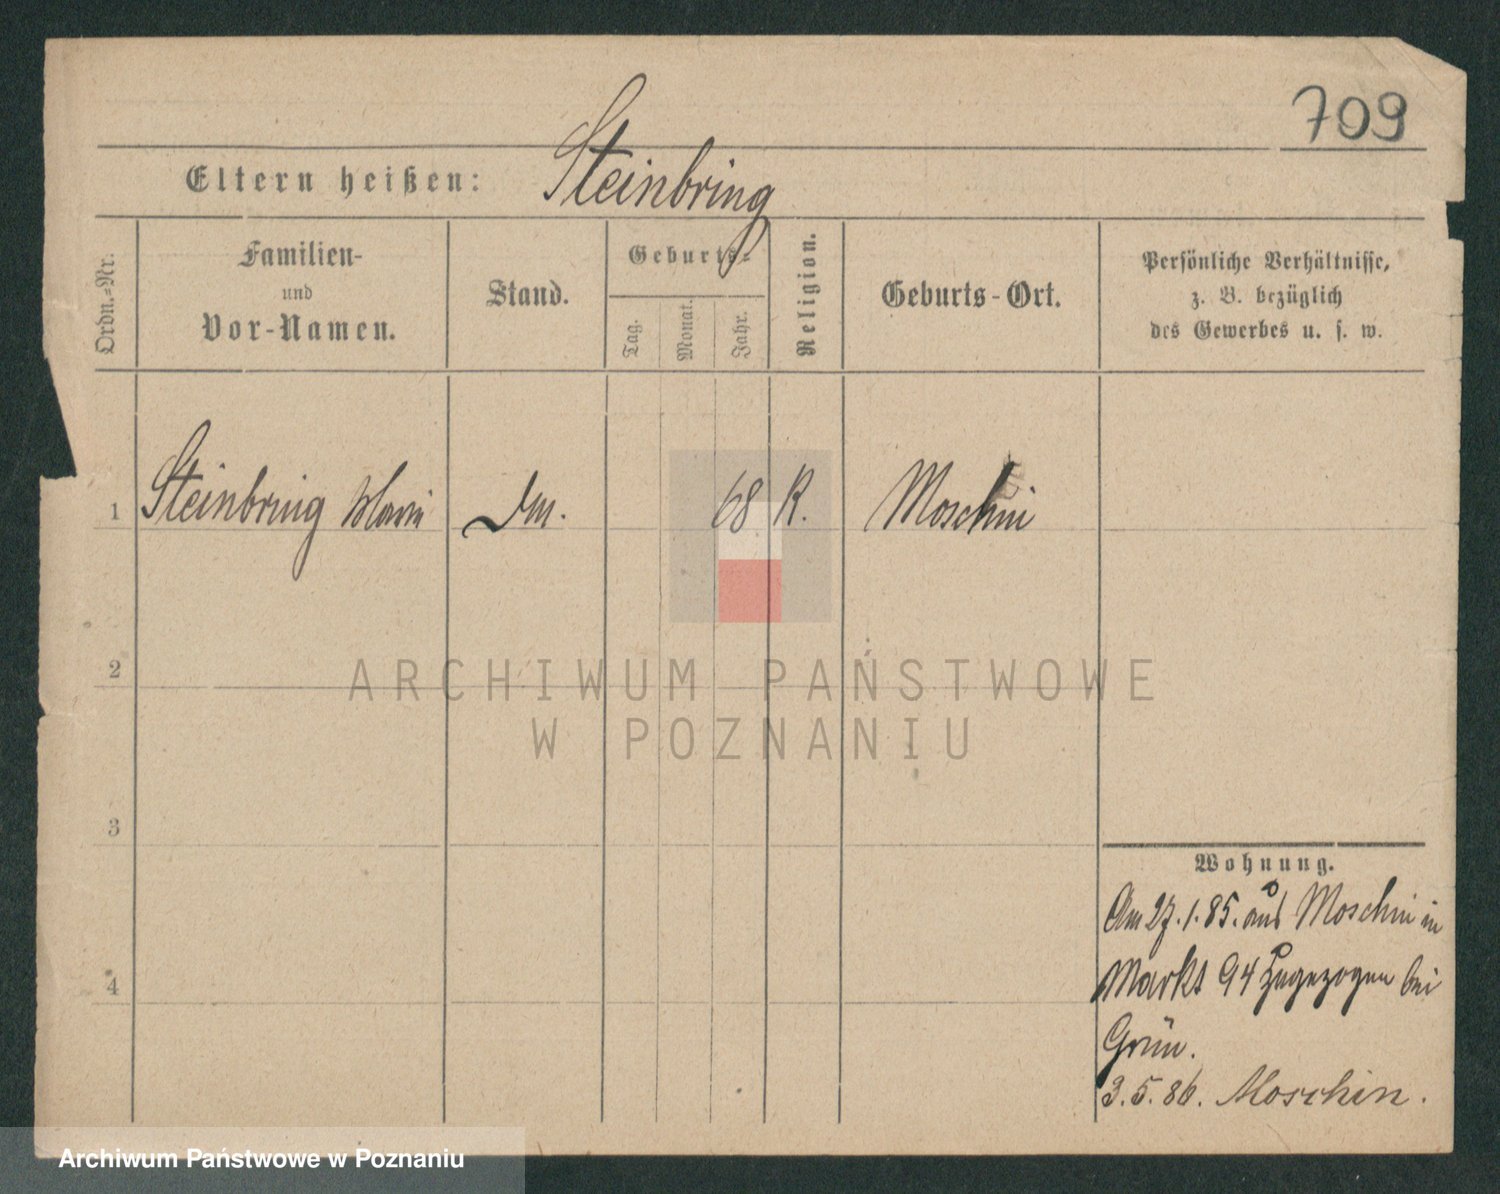 709
Eltern heißen: Steinbring
Ordn.-Nr.
Familien-
und
Vor-Namen.
Stand.
Geburts-
Tag.
Monat.
Jahr.
Religion.
Geburts-Ort.
Persönliche Verhältnisse,
z. B. bezüglich
des Gewerbes u. s. w.
1 Steinbring Maria 68 K. Moschin
2
ARCHIWUM PAŃSTWOWE
W POZNANIU
3
Wohnung.
Am 27.1.85. aus Moschin in
Markt 94 zugezogen bei
Grün.
3.5.86. Moschin.
4
Archiwum Państwowe w Poznaniu